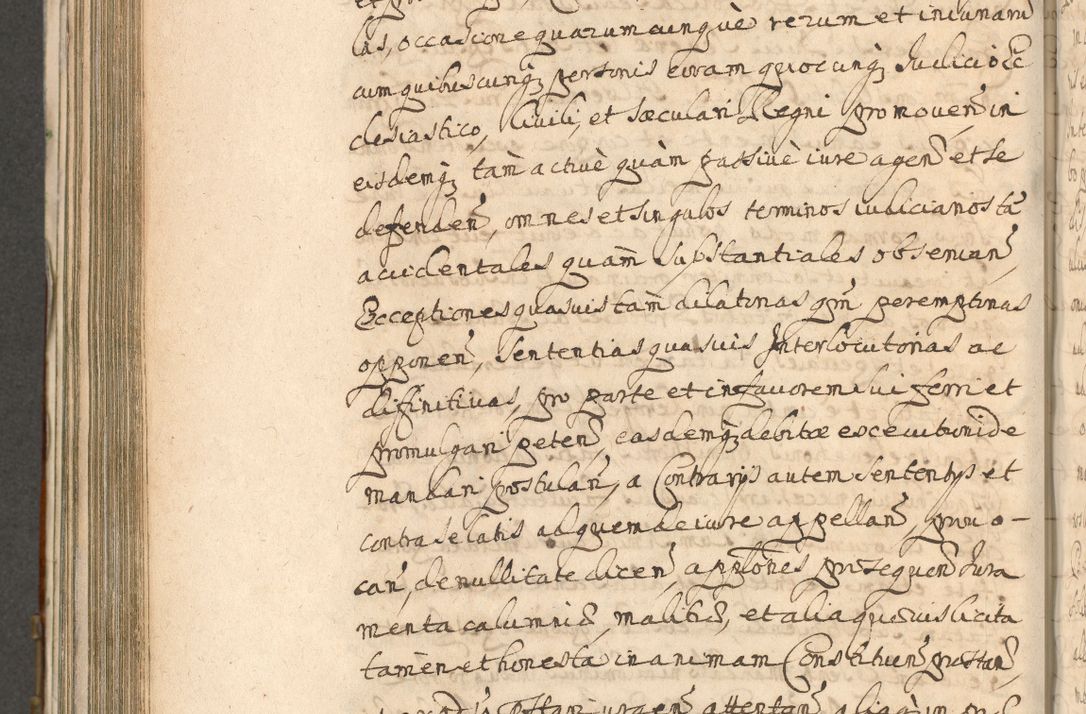 las, occasione quarumcunque rerum et iniuriarum
cum quibuscunq; personis coram quocunq; Iudicio Ec
clesiastico, Ciuili, et Sæculari Regni promouen̄, in
eisdemq; tam actiuè quàm passiuè iure agen̄ et se
defenden̄, omnes et singulos terminos iudiciarios tā
accidentales quàm substantiales obseruan̄,
Exceptiones quasuis tam dilatorias qm̄ peremptorias
opponen̄, Sententias quasuis Interlocutorias ac
difinitiuas, pro parte et in fauorem sui ferri et
promulgari peten̄ easdemq; debitæ executioni de
mandari postulan̄, a Contrarijs autem Sententijs et
contra se latis ad quem de iure appellan̄, prouo-
can̄, de nullitate dicen̄ appłones prosequen̄ Iura
menta calumniæ, malitiæ, et alia quæuis licita
tamen et honesta in animam Constituen̄ præstan̄